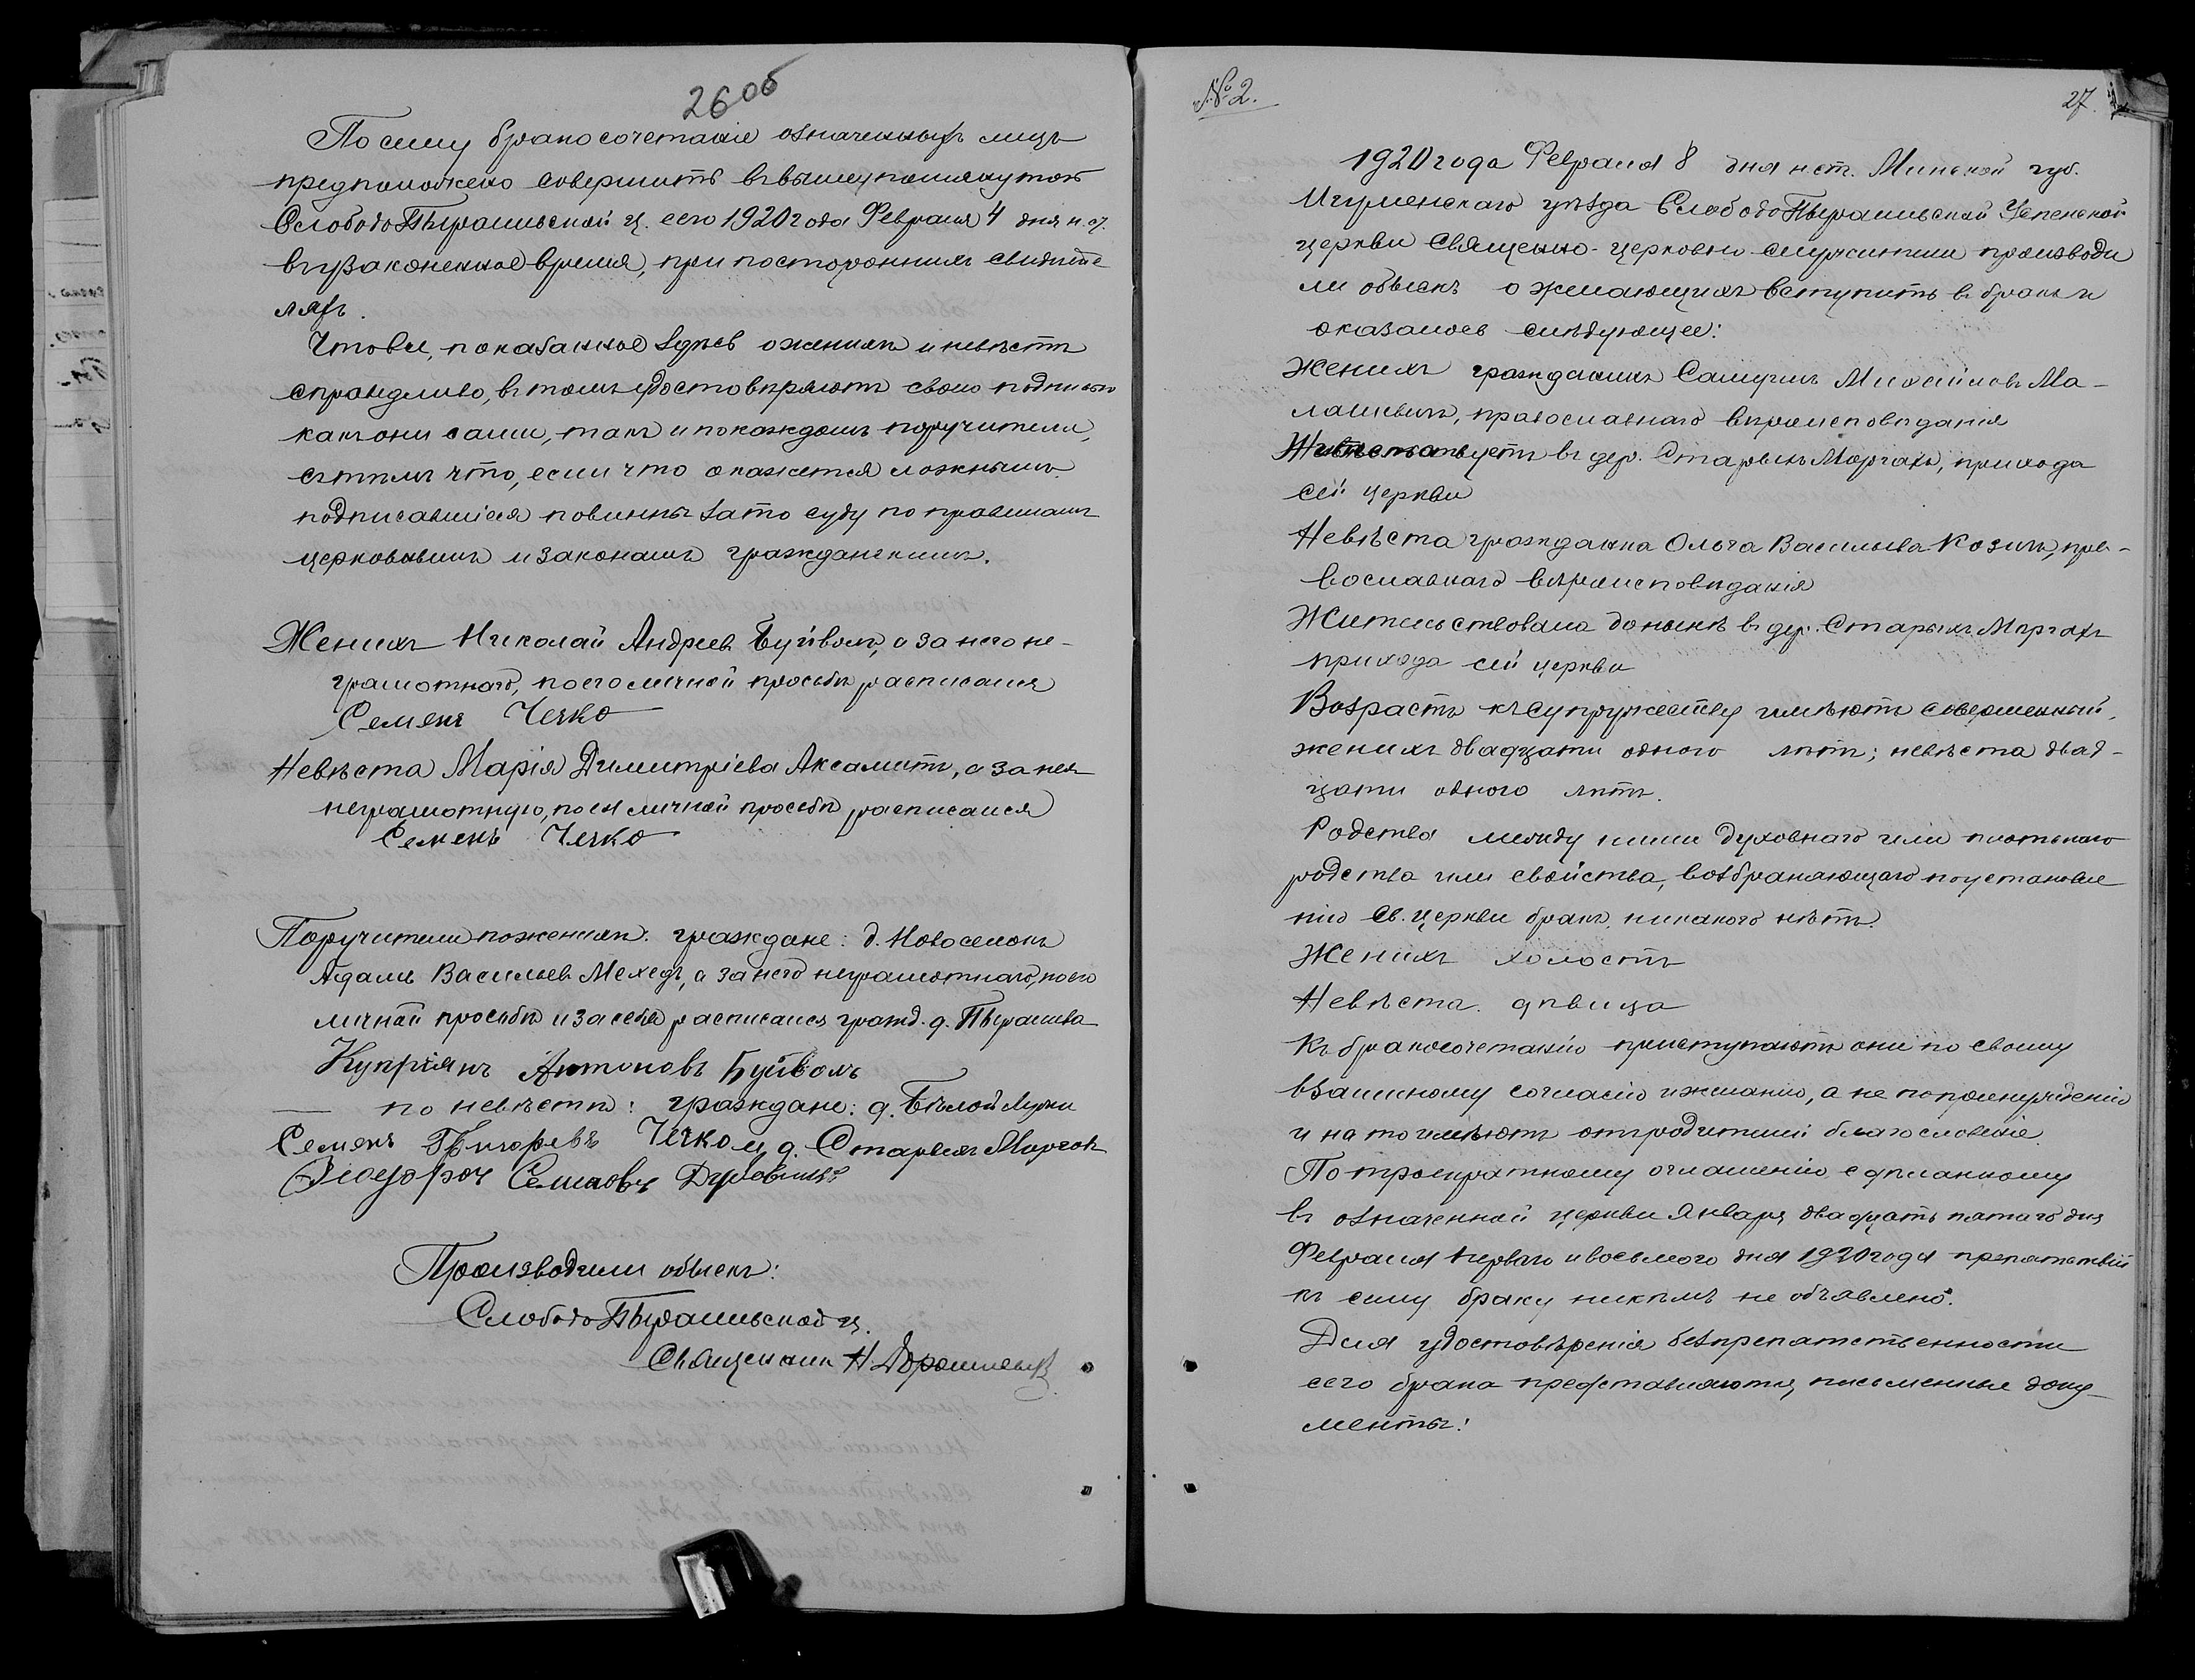 26 об
По сему бракосочетаніе означенныхъ лицъ
предположено совершить въ вышеупомянутой
СлободоПырашевской ц. сего 1920 года Февраля 4 дня н. ст.
въ узаконенное время, при постороннихъ свидѣте
ляхъ.
Что все, показанное здѣсь о женихѣ и невѣстѣ
справедливо, въ томъ удостовѣряютъ своею подписью
какъ они сами, такъ и по каждомъ поручители,
съ тѣмъ что, если что окажется ложнымъ
подписавшіеся повинны за то суду по правиламъ
церковнымъ и законамъ гражданскимъ.
Женихъ Николай Андреев Буйволъ, а за него не-
грамотнаго, по его личной просьбѣ расписался
Семенъ Чечко
Невѣста Марія Димитріева Аксамитъ, а за нея
неграмотную, по ея личной просьбѣ расписался
Семенъ Чечко
Поручители по женихѣ: граждане: д. Новоселокъ
Адамъ Васильев Мехедъ, а за него неграмотнаго, по его
личной просьбѣ и за себя расписался гражд. д. Пырашева
Купріянъ Антоновъ Буйволъ
— по невѣстѣ: граждане: д. Бѣлой Лужи
Семенъ Григорьевъ Чечко и д. Старыхъ Маргов
Семеновъ
Производили обыскъ:
СлободоПырашевской ц.
Священник Н. Дорошевич
№ 2.
27.
1920 года Февраля 8 дня н. ст. Минской губ.
Игуменскаго уѣзда СлободоПырашевской Успенской
церкви Священно-церковно служители производи
ли обыскъ о желающихъ вступить въ бракъ и
оказалось слѣдующее:
Женихъ гражданинъ Самуилъ Михайловъ Ма-
лашевичъ, православнаго вѣроисповѣданія
въ дер. Старыхъ Моргахъ, прихода
сей церкви
Невѣста гражданка Ольга Васильева Козичъ, пра-
вославнаго вѣроисповѣданія
Жительствовала до нынѣ въ дер. Старыхъ Моргахъ
прихода сей церкви
Возрастъ къ супружеству имѣютъ совершенный,
женихъ двадцати одного лѣтъ; невѣста двад-
цати одного лѣтъ.
Родства между ними духовнаго или плотскаго
родства или свойства, возбраняющаго по установле
нію Св. церкви бракъ, никакого нѣтъ.
Женихъ холостъ
Невѣста дѣвица
Къ бракосочетанію приступаютъ они по своему
взаимному согласію и желанію, а не по принужденію
и на то имѣютъ отъ родителей благословеніе.
По троекратному оглашенію, сдѣланному
въ означенной церкви Января двадцать пятаго дня
Февраля перваго и восьмого дня 1920 года препятствій
къ сему браку никѣмъ не объявлено.
Для удостовѣренія безпрепятственности
сего брака представляются, письменные доку
менты: